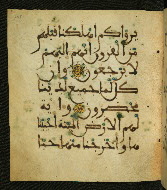 يروا كم أهلكنا قبلهم
من القرون أنهم إليهم
لا يرجعون وإن
كل لما جميع لدينا
محضرون وءاية
لهم الأرض الميتة أحيينا
ها وأخرجنا منها حبا